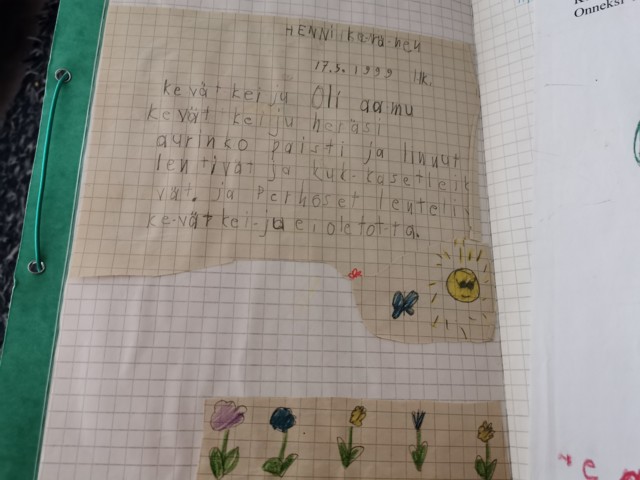 HENNI ka-rä-nen
17.5.1999 llk.
kevät keiju Oli aamu
kevät keiju heräsi
aurinko paisti ja linnut
lentivät ja kuk-kasetleik
vät. ja perhoset lenteli
ke-vät kei-ju ei ole tot-ta.
Onneksi